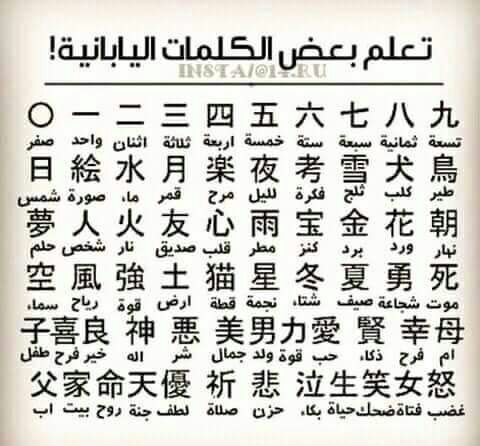 تعلم بعض الكلمات اليابانية!
INSTA/@14.RU
〇 一 二 三 四 五 六 七 八 九
صفر واحد اثنان ثلاثة اربعة خمسة ستة سبعة ثمانية تسعة
日 絵 水 月 楽 夜 考 雪 犬 鳥
شمس صورة ماء قمر مرح لليل فكرة ثلج كلب طير
夢 人 火 友 心 雨 宝 金 花 朝
حلم شخص نار صديق قلب مطر كنز برد ورد نهار
空 風 強 土 猫 星 冬 夏 勇 死
سماء رياح قوة ارض قطة نجمة شتاء صيف شجاعة موت
子 喜 良 神 悪 美 男 力 愛 賢 幸 母
طفل فرح خير اله شر جمال ولد قوة حب ذكاء فرح ام
父 家 命 天 優 祈 悲 泣 生 笑 女 怒
اب بيت روح جنة لطف صلاة حزن بكاء حياة ضحك فتاة غضب